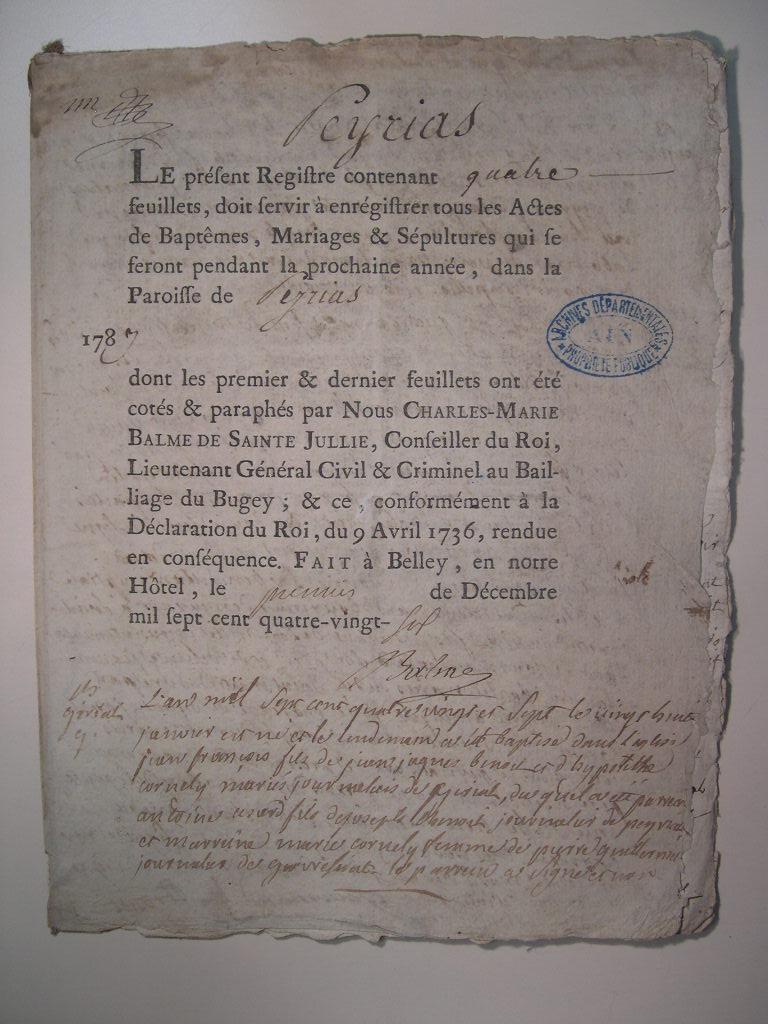 Peyrias
LE préſent Regiſtre contenant quatre
feuillets, doit ſervir à enrégiſtrer tous les Actes
de Baptêmes, Mariages & Sépultures qui ſe
feront pendant la prochaine année, dans la
Paroiſſe de Peyrias
1787
dont les premier & dernier feuillets ont été
cotés & paraphés par Nous CHARLES-MARIE
BALME DE SAINTE JULLIE, Conſeiller du Roi,
Lieutenant Général Civil & Criminel au Bail-
liage du Bugey ; & ce, conformément à la
Déclaration du Roi, du 9 Avril 1736, rendue
en conſéquence. FAIT à Belley, en notre
Hôtel, le premier de Décembre
mil ſept cent quatre-vingt-six
Balme
ARCHIVES DÉPARTEMENTALES
AIN
PROPRIÉTÉ PUBLIQUE
L'an mil sept cent quatre vingt et sept le vingt huit
janvier est né et le lendemain a été baptisé dans l'eglise
jean françois fils de jean jaques benoit et d'hypolithe
cornely mariés journaliers de
antoine fils de joseph benoit journalier de peyrias
et marreine marie cornely femme de pierre
journalier de le parrein a signé et non